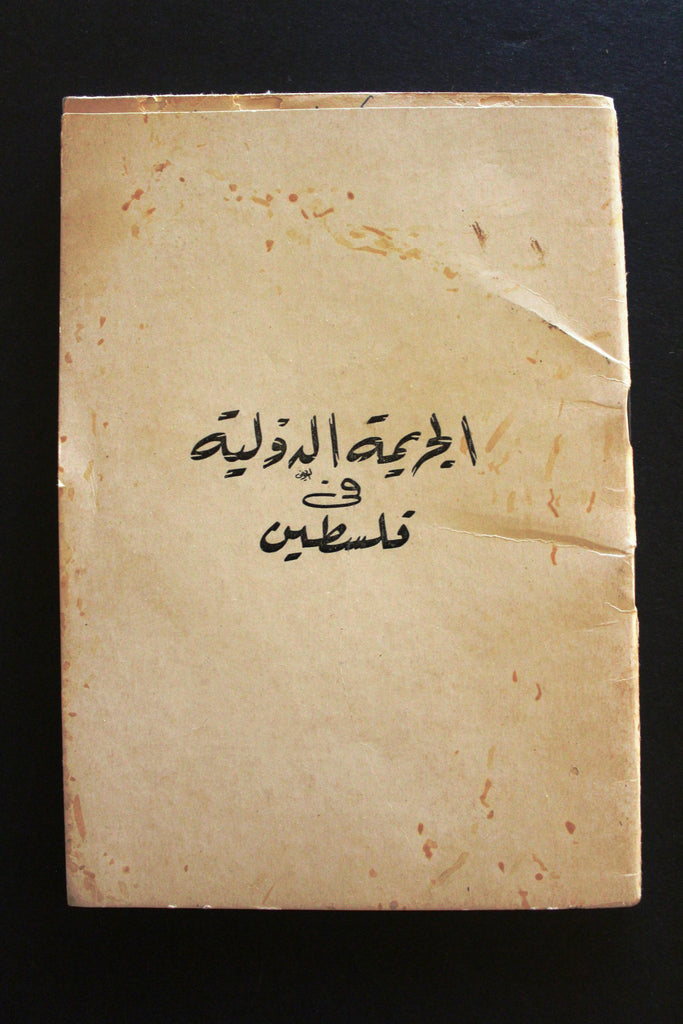 الجريمة الدولية
فى
فلسطين